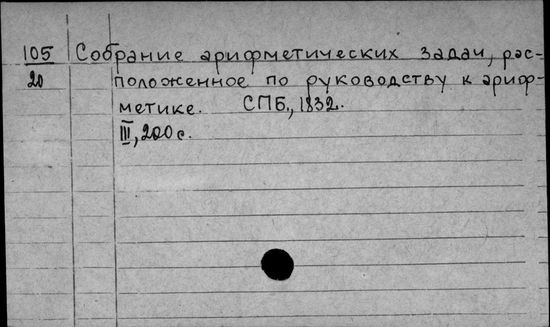 105 Собрание арифметических задач, рас-
20 положенное по руководству к ариф-
метике. СПБ., 1832.
III, 200 с.